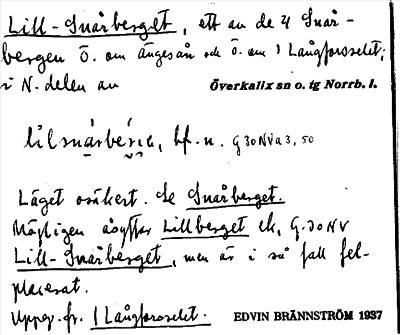 Lill-Snårberget, ett av de 4 Snår-
bergen Ö. om Ängesån och Ö. om 1 Långforsselet;
i N. delen av Överkalix sn o. tg Norrb. l.
bf. n. G30NVa3,50
Läget osäkert. Se Snårberget.
Möjligen åsyftas Lillberget ek. G.30NV
Lill-Snårberget, men är i så fall fel-
placerat.
Uppg. fr. 1 Långforsselet. EDVIN BRÄNNSTRÖM 1937